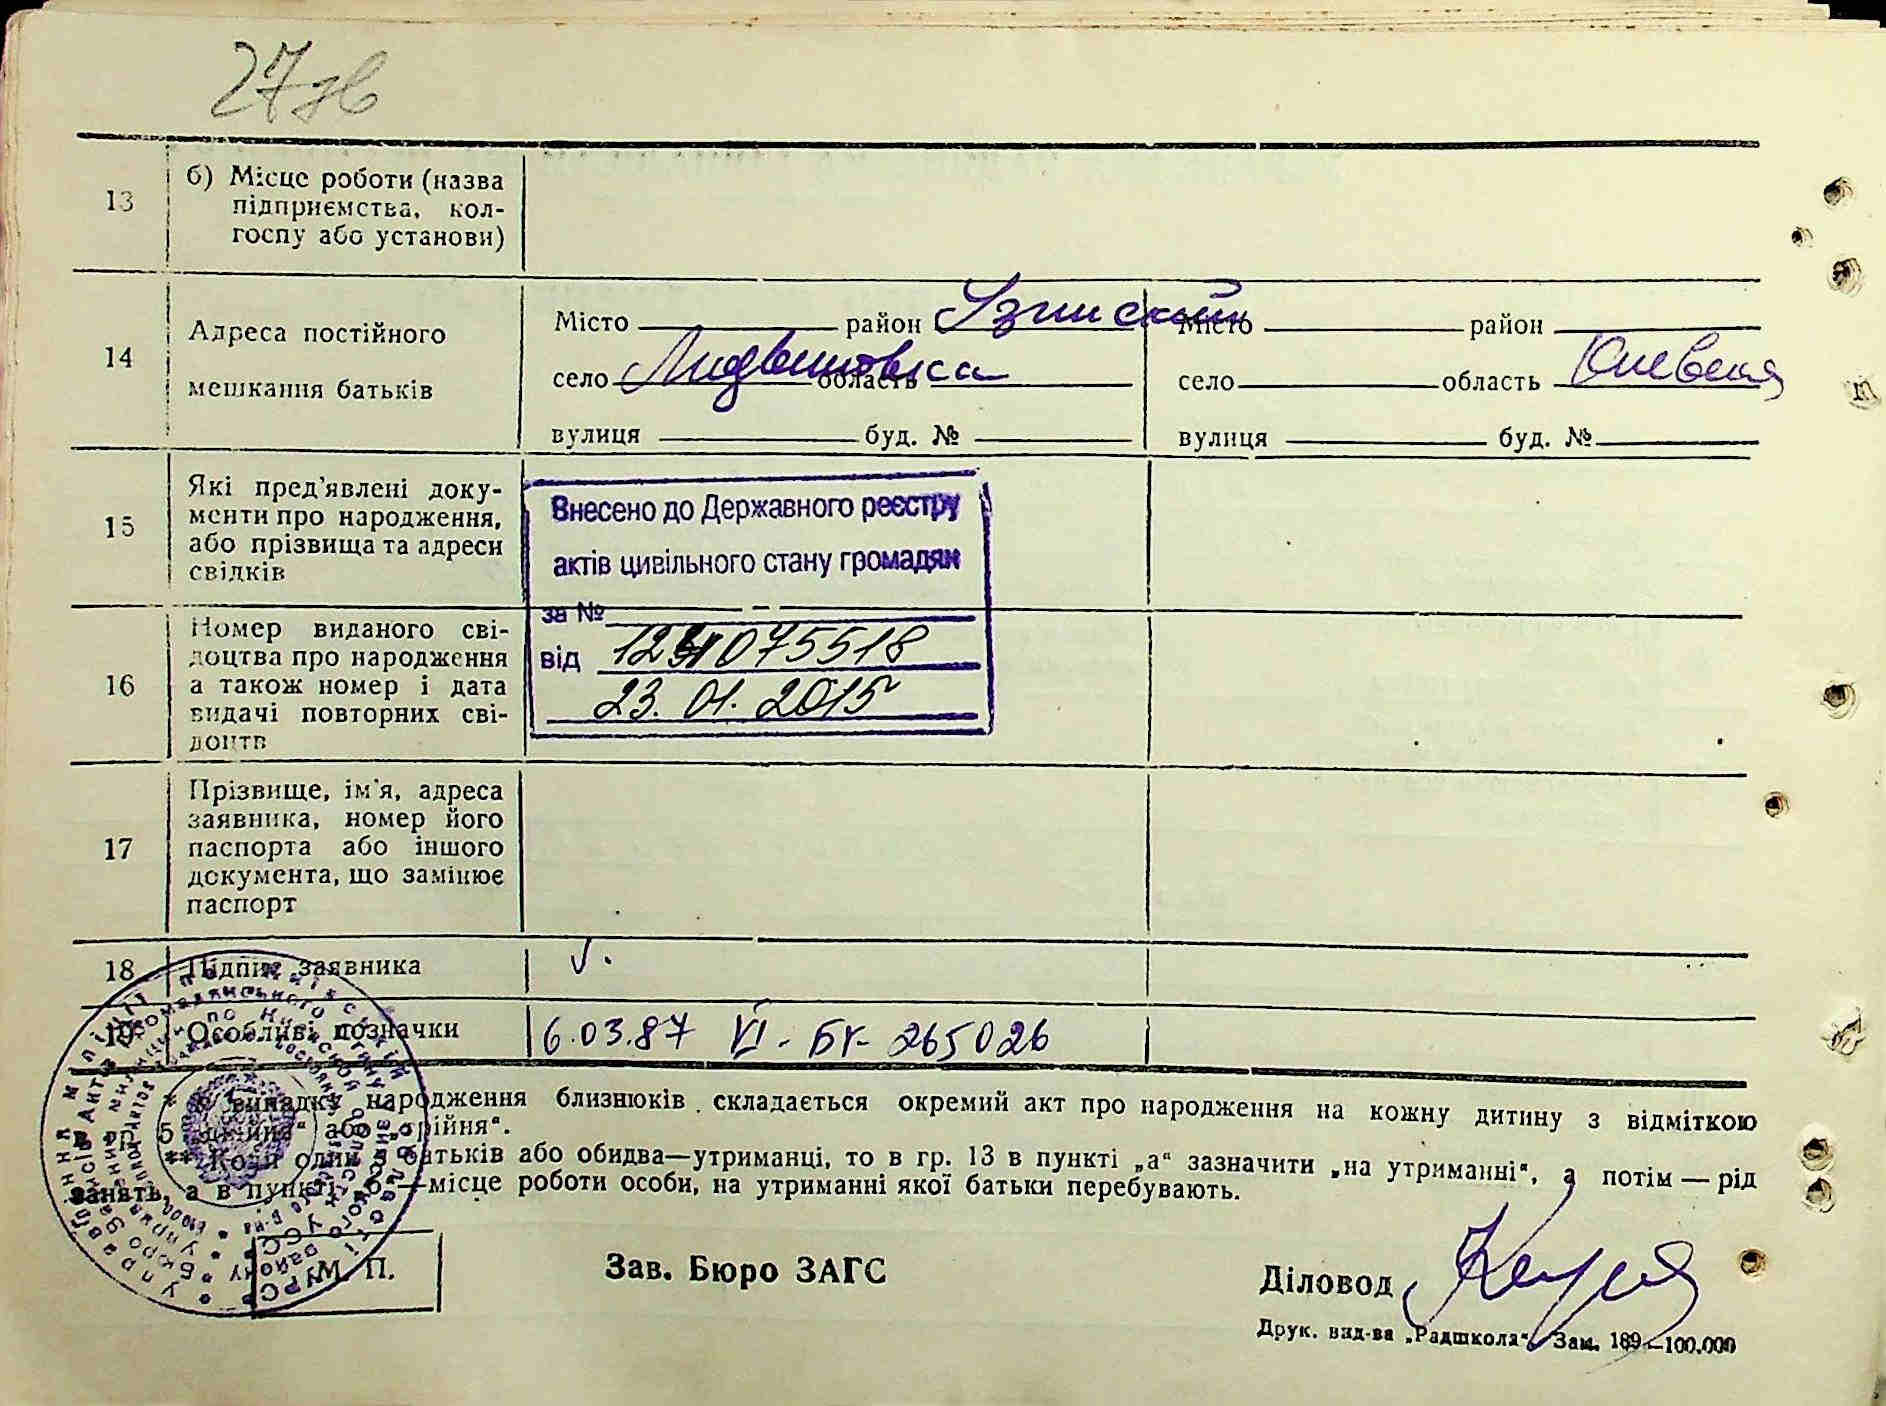 27зв
13 б) Місце роботи (назва
підприємства, кол-
госпу або установи)
14 Адреса постійного
мешкання батьків
Місто район Узинский Місто район
село Лидвиновка область село область Киевская
вулиця буд. № вулиця буд. №
15 Які пред'явлені доку-
менти про народження,
або прізвища та адреси
свідків
Внесено до Державного реєстру
актів цивільного стану громадян
за №
від 1231075518
23.01.2015
16 Номер виданого сві-
доцтва про народження
а також номер і дата
видачі повторних сві-
доцтв
17 Прізвище, ім'я, адреса
заявника, номер його
паспорта або іншого
документа, що замінює
паспорт
18 Підпис заявника
19 Особливі позначки 6.03.87 VI-БК-265026
* У випадку народження близнюків складається окремий акт про народження на кожну дитину з відміткою
в гр. 5 „двійня“ або „трійня“.
** Коли один з батьків або обидва—утриманці, то в гр. 13 в пункті „а“ зазначити „на утриманні“, а потім — рід
занять, а в пункті „б“—місце роботи особи, на утриманні якої батьки перебувають.
М. П. Зав. Бюро ЗАГС Діловод
Друк. вид-ва „Радшкола“. Зам. 189—100.000